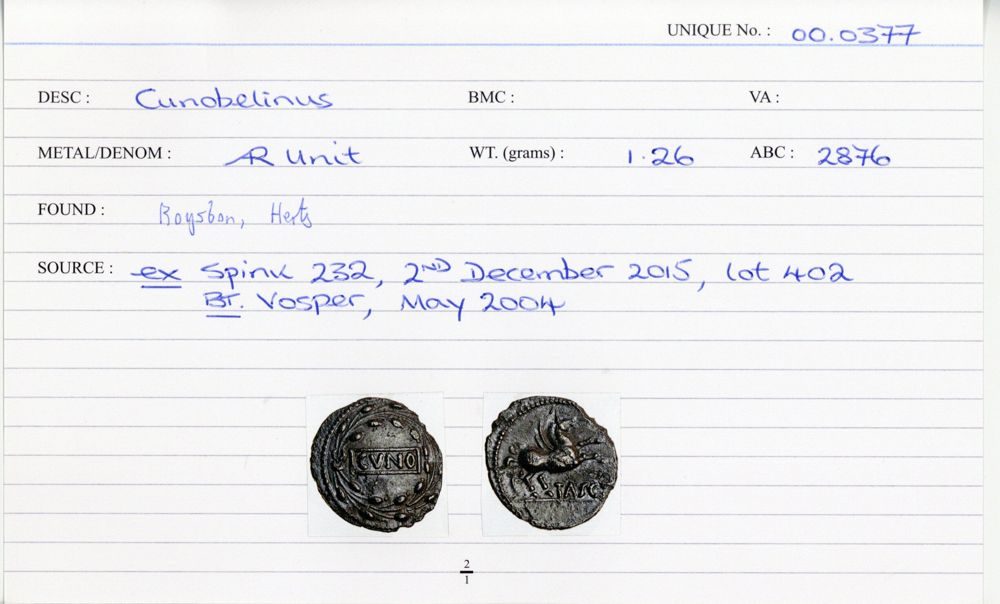 UNIQUE No. : 00.0377
DESC : Cunobelinus BMC : VA :
METAL/DENOM : AR Unit WT. (grams) : 1.26 ABC : 2876
FOUND : Royston, Herts
SOURCE : ex Spink 232, 2ND December 2015, lot 402
Bt. Vosper, May 2004
CVNO
TASC
2
1